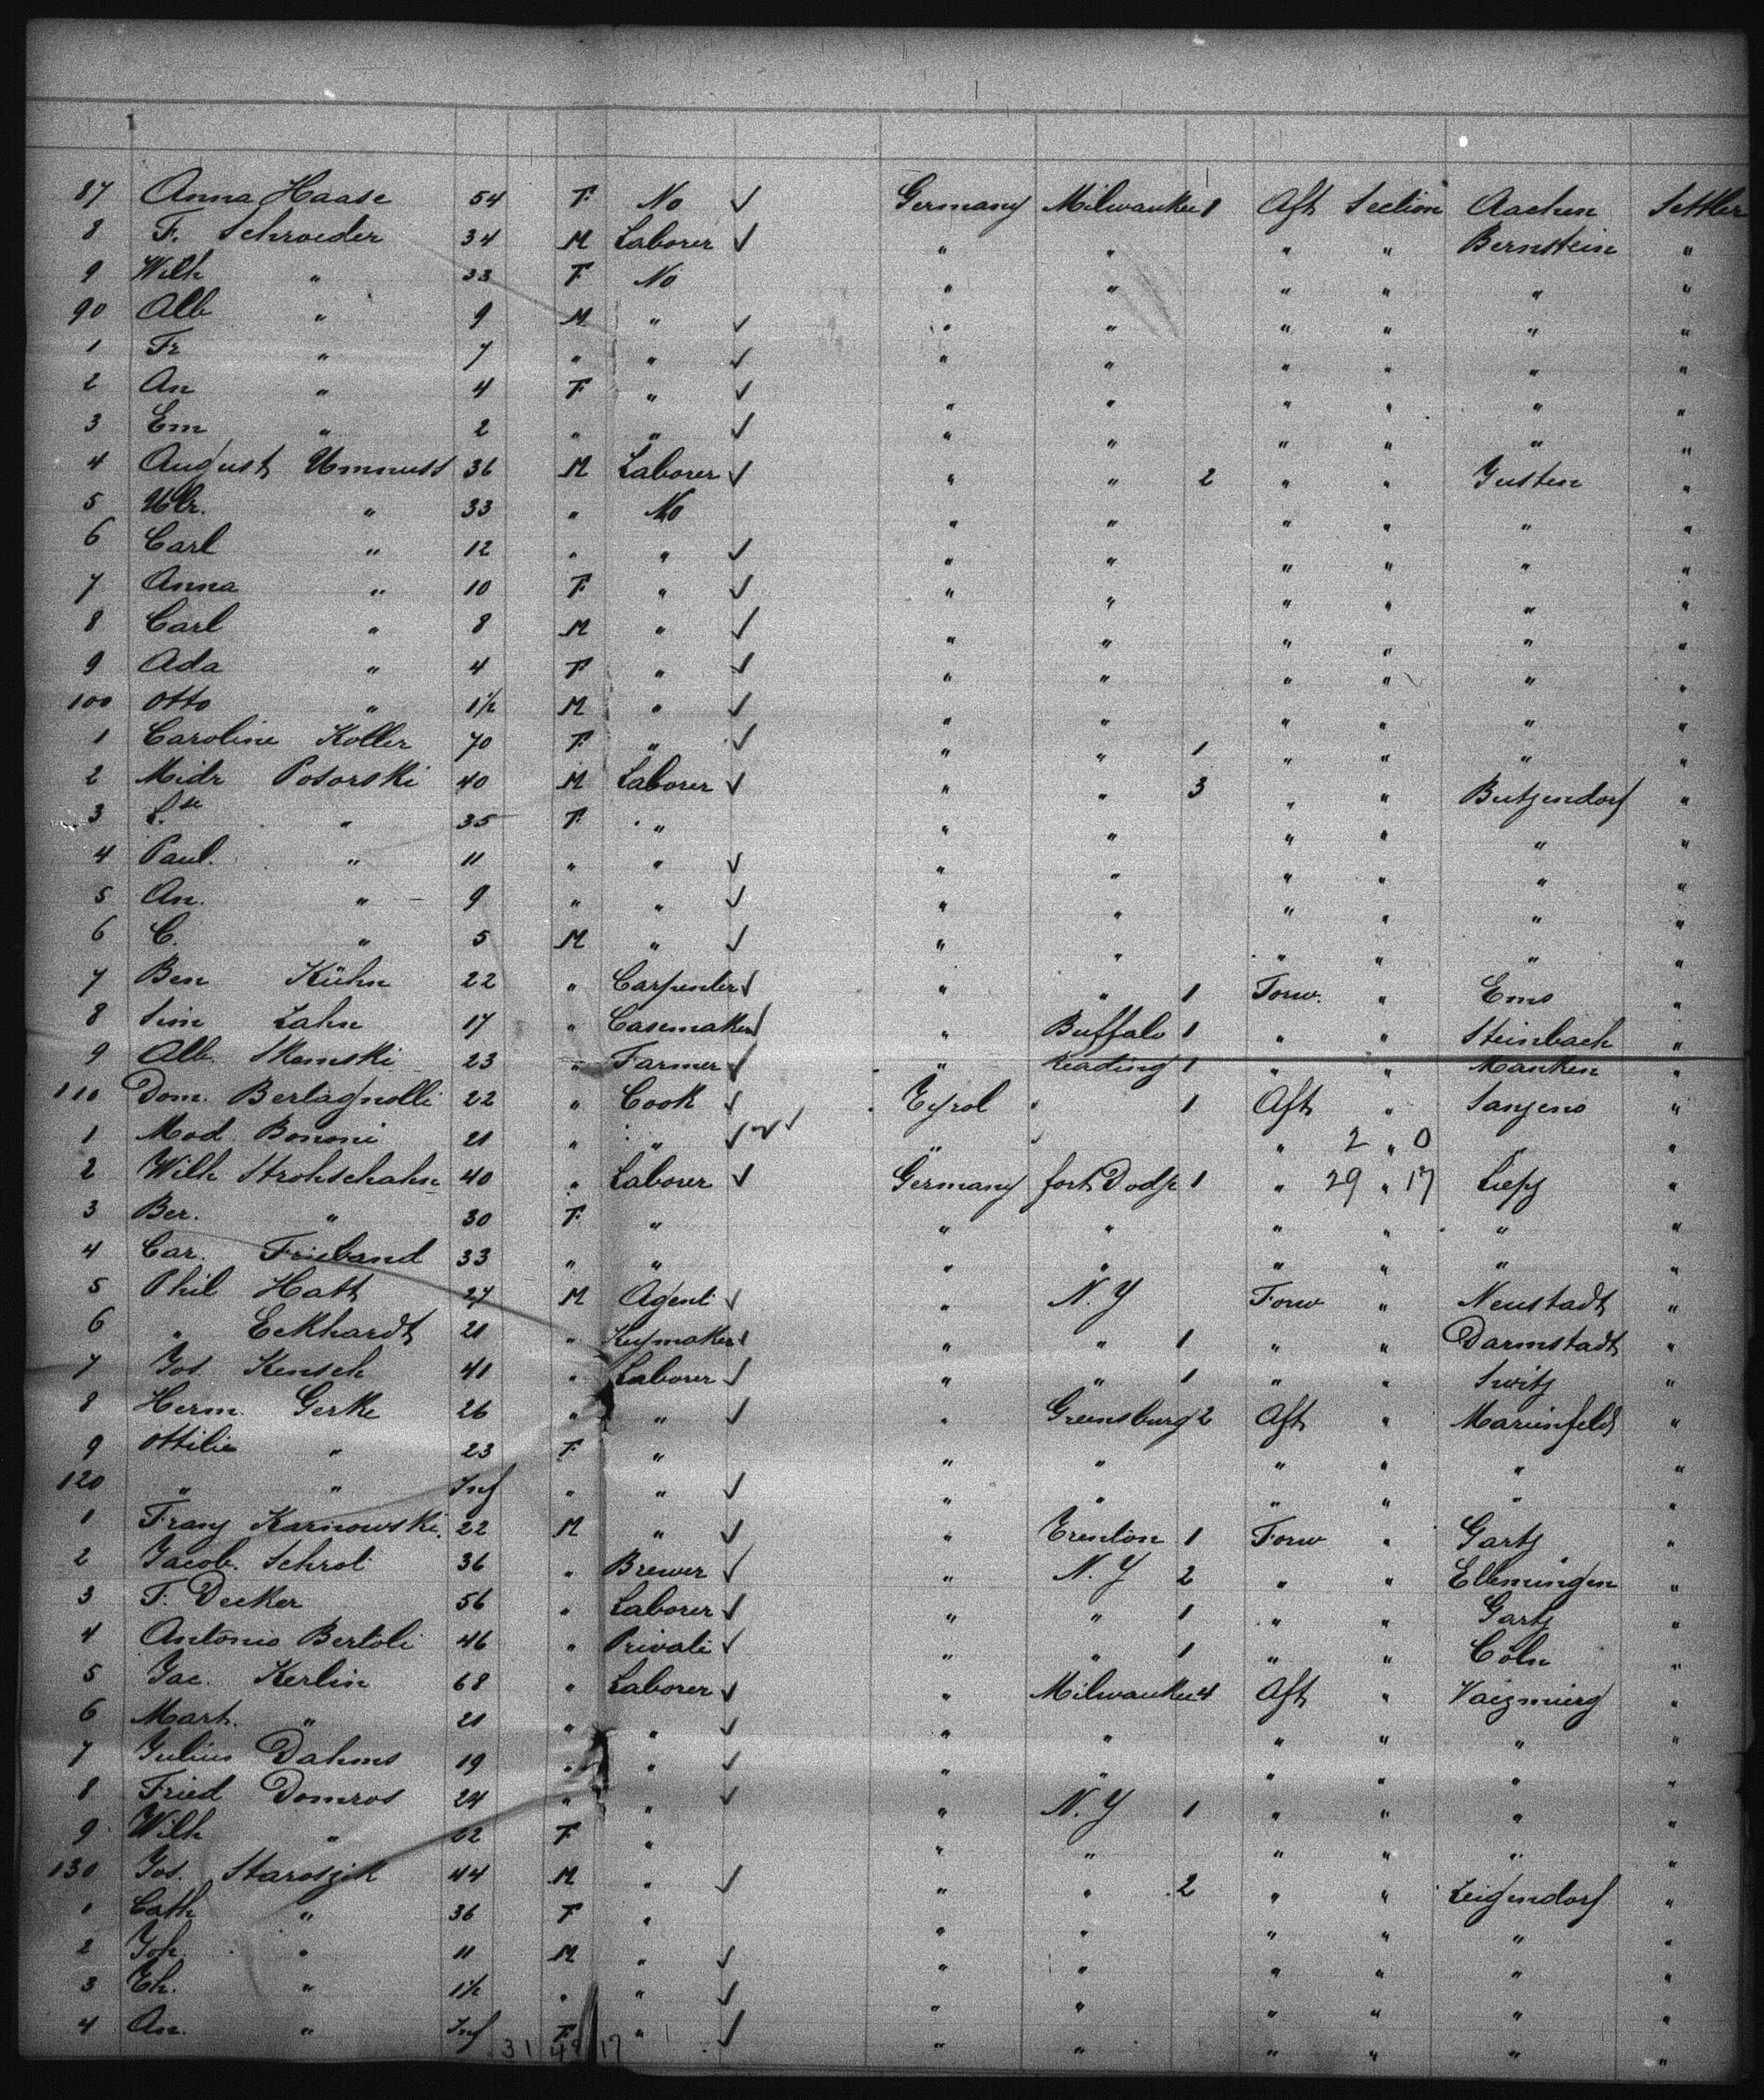 87 Anna Haase 54 F. No ✓ Germany Milwaukee 1 Aft Section Aachen Settler
8 F. Schroeder 34 M Laborer ✓ " " " " Bernstein "
9 Wilh " 33 F No " " " " " "
90 Alb " 9 M " ✓ " " " " " "
1 Fr " 7 " " ✓ " " " " " "
2 An " 4 F " ✓ " " " " " "
3 Em " 2 " " ✓ " " " " " "
4 August Ummuss 36 M Laborer ✓ " " 2 " " Gusten "
5 " 33 " No " " " " " "
6 Carl " 12 " " ✓ " " " " " "
7 Anna " 10 F " ✓ " " " " " "
8 Carl " 8 M " ✓ " " " " " "
9 Ada " 4 F " ✓ " " " " " "
100 Otto " 1½ M " ✓ " " " " " "
1 Caroline Koller 70 F " ✓ " " 1 " " " "
2 Midr Potorski 40 M Laborer ✓ " " 3 " " Butzendorf "
3 " 35 F " " " " " " "
4 Paul. " 11 " " ✓ " " " " " "
5 An. " 9 " " ✓ " " " " " "
6 C. " 5 M " ✓ " " " " " "
7 Ben Kühn 22 " Carpenter ✓ " " 1 Forw. " Ems "
8 Sim Lahn 17 " Casemaker ✓ " Buffalo 1 " " Steinbach "
9 Alb. Skemski 23 " Farmer ✓ " Reading 1 " " Manken "
110 Dom. Bertagnolli 22 " Cook ✓ Tyrol " 1 Aft " Sanzeno "
1 Mod Bononi 21 " " ✓ ✓ " " " 2 " 0 " "
2 Wilh Strohschahn 40 " Laborer ✓ Germany fort Dodge 1 " 29 " 17 Liepz "
3 Ber. " 30 F " " " " " " "
4 Car. Frieband 33 " " " " " " " "
5 Phil Hatt 27 M Agent ✓ " N.Y Forw " Neustadt "
6 " Eckhardt 21 " Keymaker ✓ " " 1 " " Darmstadt "
7 Jos Kensch 41 " Laborer ✓ " " 1 " " Switz "
8 Herm. Gerke 26 " " ✓ " Greensburg 2 Aft " Marienfeld "
9 Ottilie " 23 F " " " " " " "
120 " " Inf " " ✓ " " " " " "
1 Franz Karnowski 22 M " ✓ " Trenton 1 Forw " Gartz "
2 Jacob. Schrot 36 " Brewer ✓ " N.Y 2 " " Ellemingen "
3 F. Decker 56 " Laborer ✓ " " 1 " " Gartz "
4 Antonio Bertoli 46 " Privati ✓ " " 1 " " Coln "
5 Jac. Kerlin 68 " Laborer ✓ " Milwaukee 4 Aft "
6 Mart. " 21 " " ✓ " " " " " "
7 Julius Dahms 19 " " ✓ " " " " " "
8 Fried Domros 24 " " ✓ " N.Y 1 " " " "
9 Wilh " 62 F " " " " " " "
130 Jos. Staroszik 44 M " ✓ " " 2 " " Leigendorf "
1 Cath " 36 F " " " " " " "
2 Joh. " 11 M " ✓ " " " " " "
3 Th. " 1½ " " ✓ " " " " " "
4 An. " Inf F " ✓ " " " " " "
31 48 17